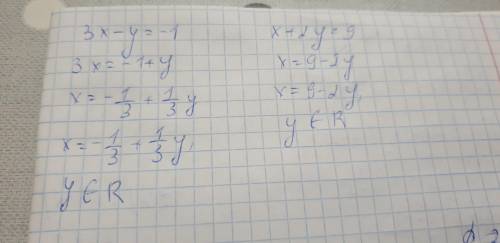 3x-y=-1
3x=-1+y
x=-1/3+1/3y
x=-1/3+1/3y,
y∈R
x+2y=9
x=9-2y
x=9-2y,
y∈R